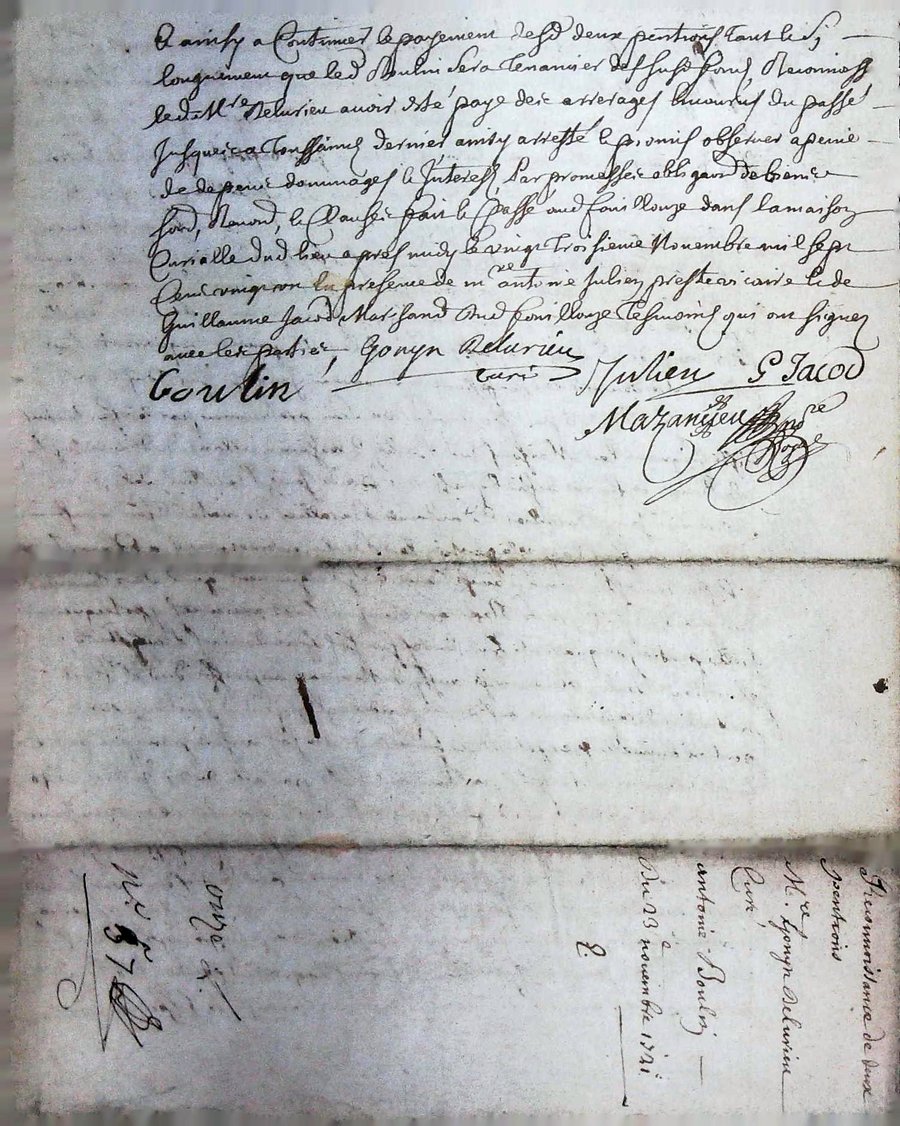 Et ainsy a Continuer le payement desd. deux pentions tant et sy
longuement que led. Boulin sera tenancier desd. susd. fonds, Reconnoiss
led. Mre Delurieu avoir esté payé des arrerages encourus du passé
jusques a Toussaincts dernier ainsy arresté et promis observer a peine
de depens dommages et Interests, Par promesses obligaon de biens
soub., Renond, et Clauses fait et Passé aud. fouillouze dans la maison
Curialle dud. lieu apres midy le vingt troisieme Novembre mil sept
Cens vingt un en presence de mre antoine Julien prestre vicaire et de
Guillaume Jacod Marchand dud. fouillouze Tesmoins qui ont signez
avec les parties, Gonyn Delurieu
curé
Boulin
Julien G Jacod
Mazandieu nore
Royal
Reconnoissance de deux
pentions
Mre Gonyn Delurieu
Curé
antoine Boulin
Du 23e novembre 1721
onze